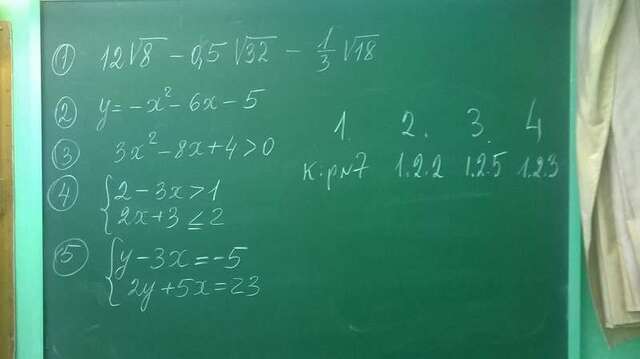 ① 12√8 - 0,5√32 - 1/3√18
② y = -x² - 6x - 5
③ 3x² - 8x + 4 > 0
④ { 2 - 3x > 1
2x + 3 ≤ 2
⑤ { y - 3x = -5
2y + 5x = 23
1. 2. 3. 4
к.р №7 1.2.2 1.2.5 1.2.3